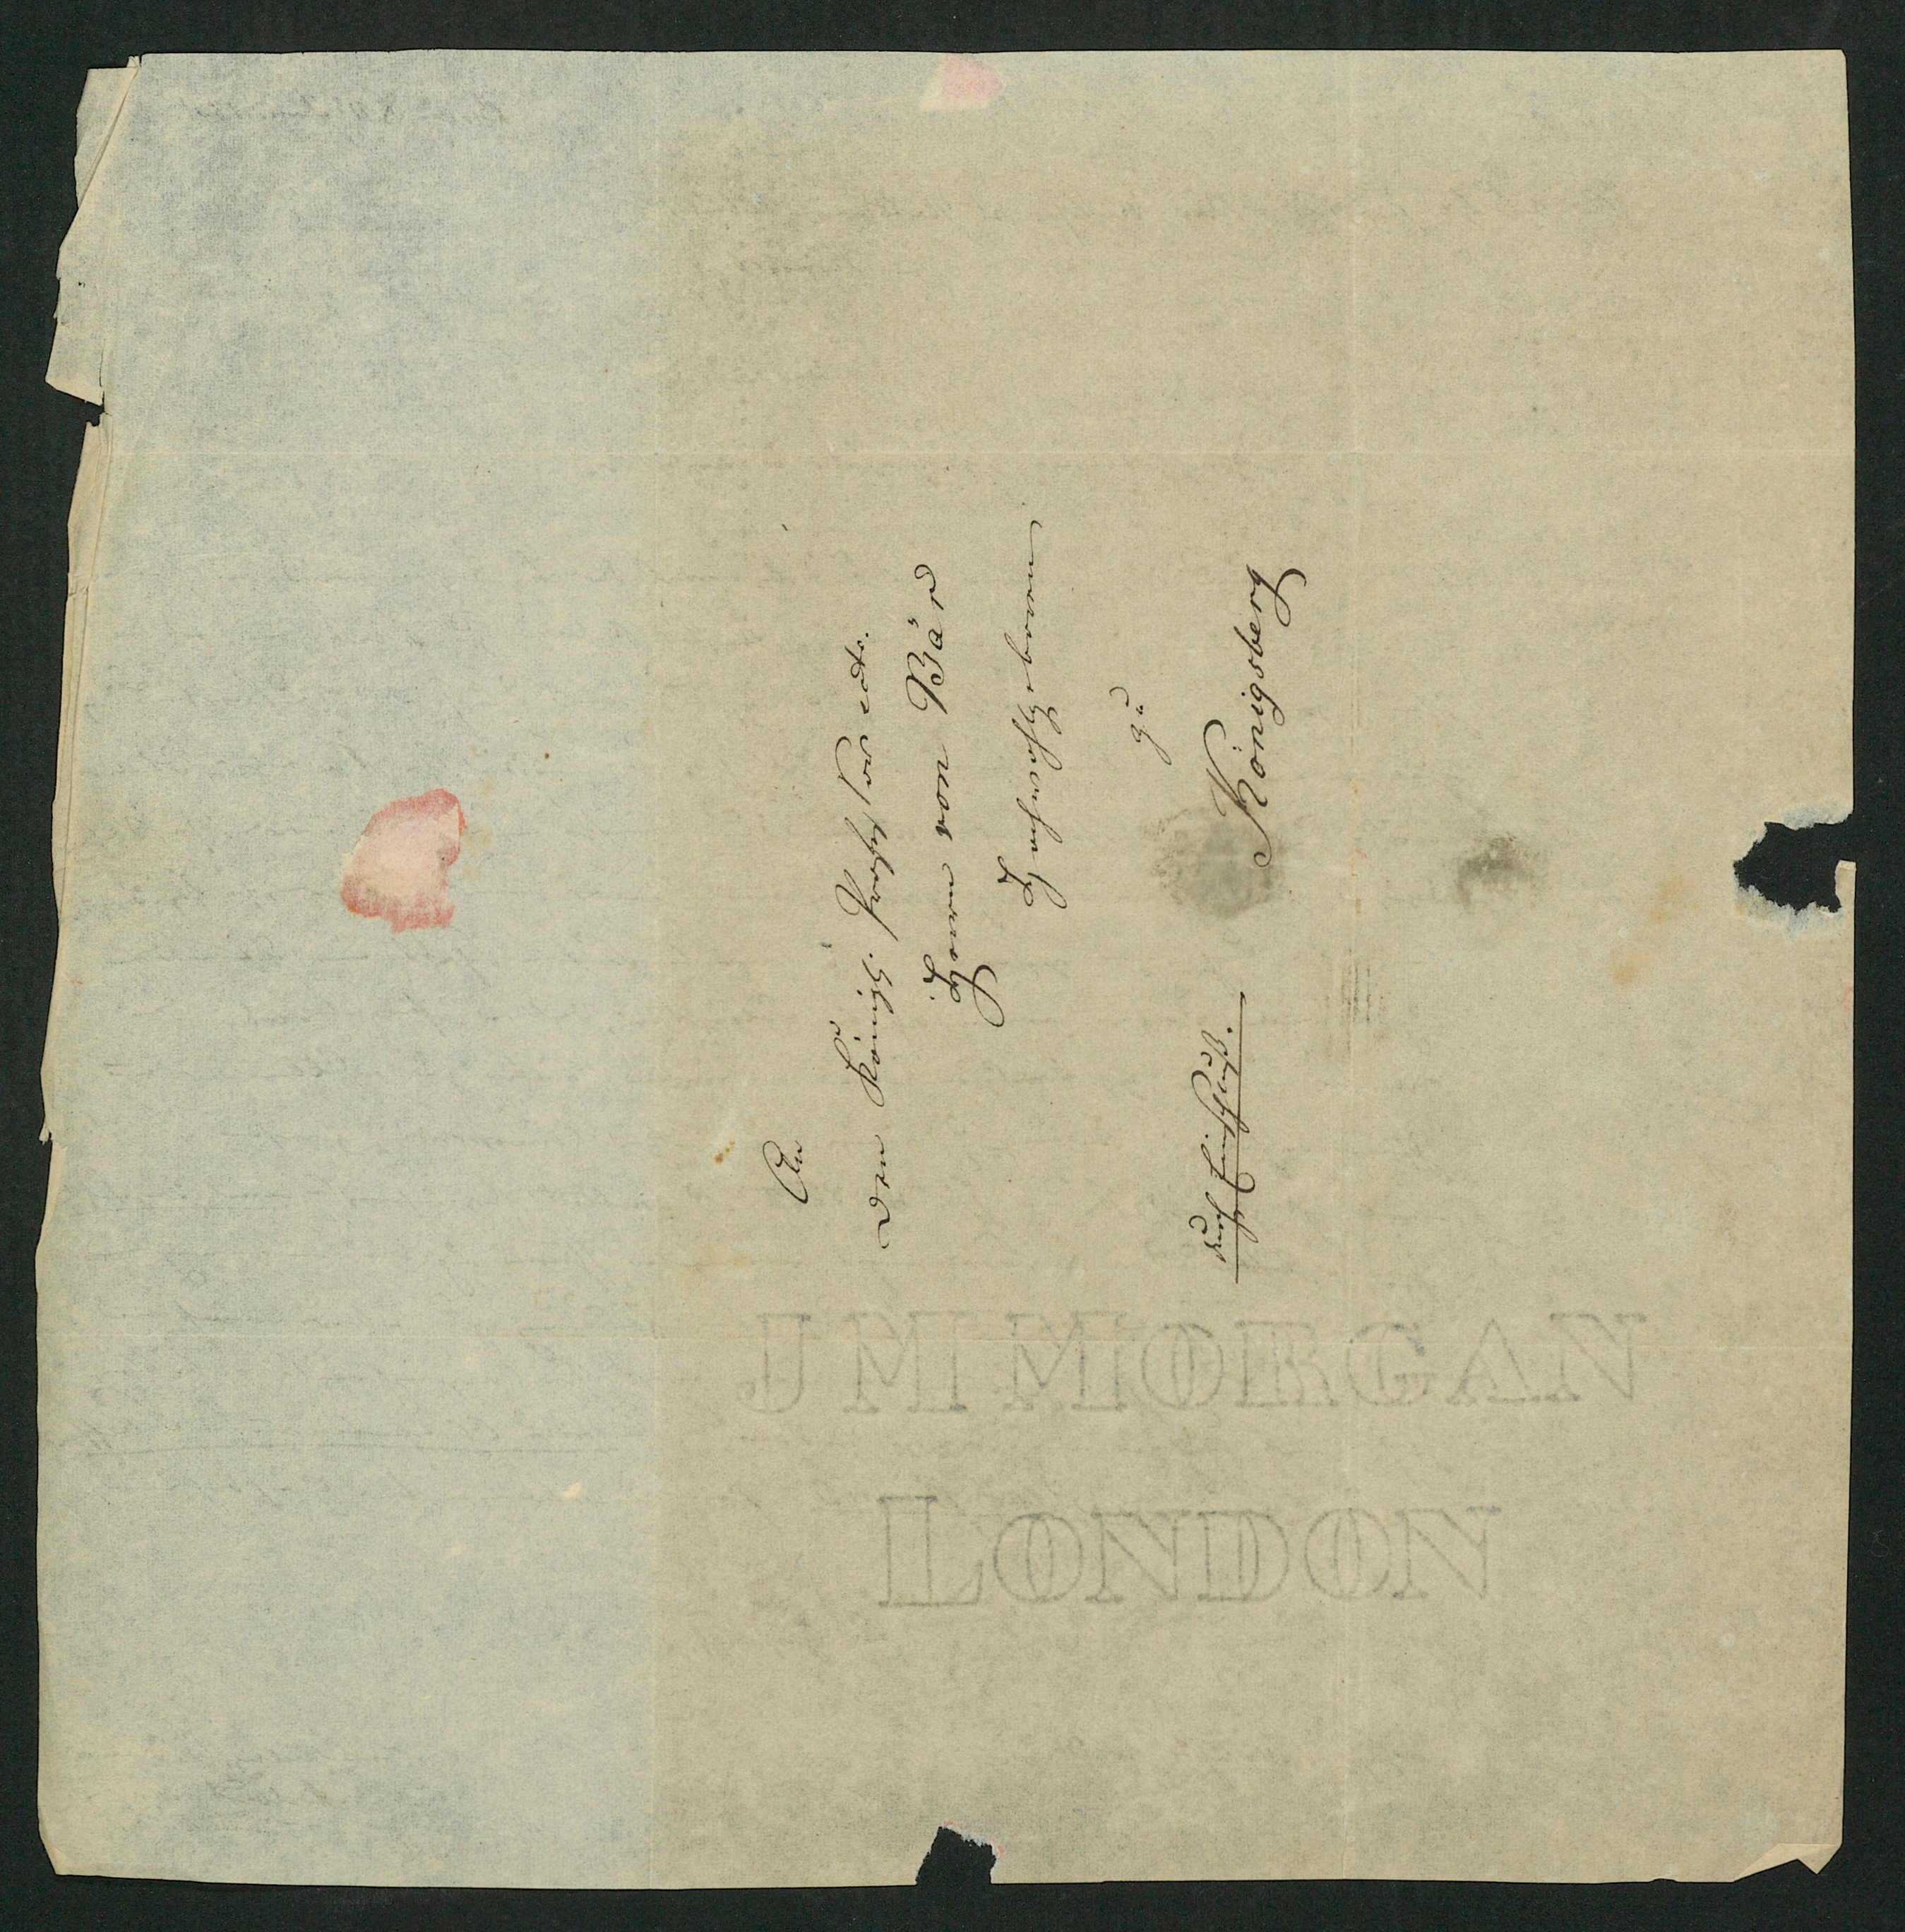 An
den Königl. Professor etc.
Herrn von Bär
Hochwohlgeboren
zu
Königsberg
durch Einschluß.
J M MORGAN
LONDON